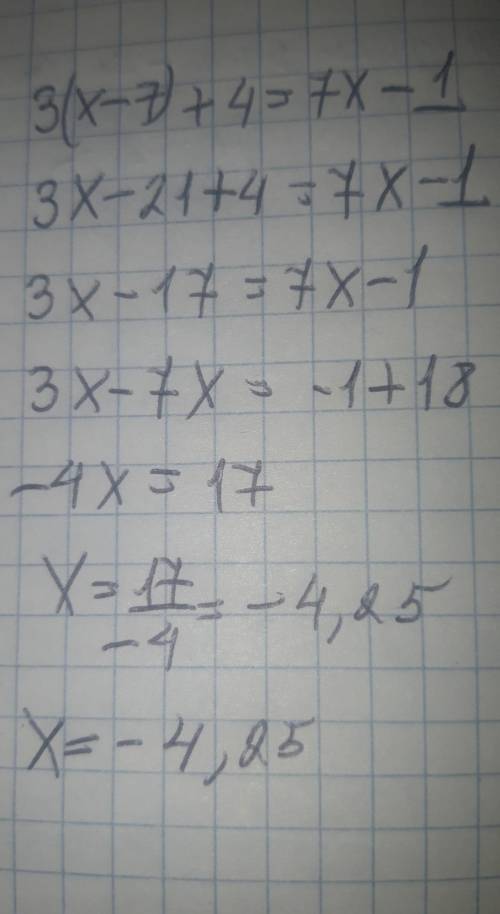 3(x-7)+4=7x-1
3x-21+4=7x-1
3x-17=7x-1
3x-7x=-1+18
-4x=17
x=17/-4=-4,25
x=-4,25